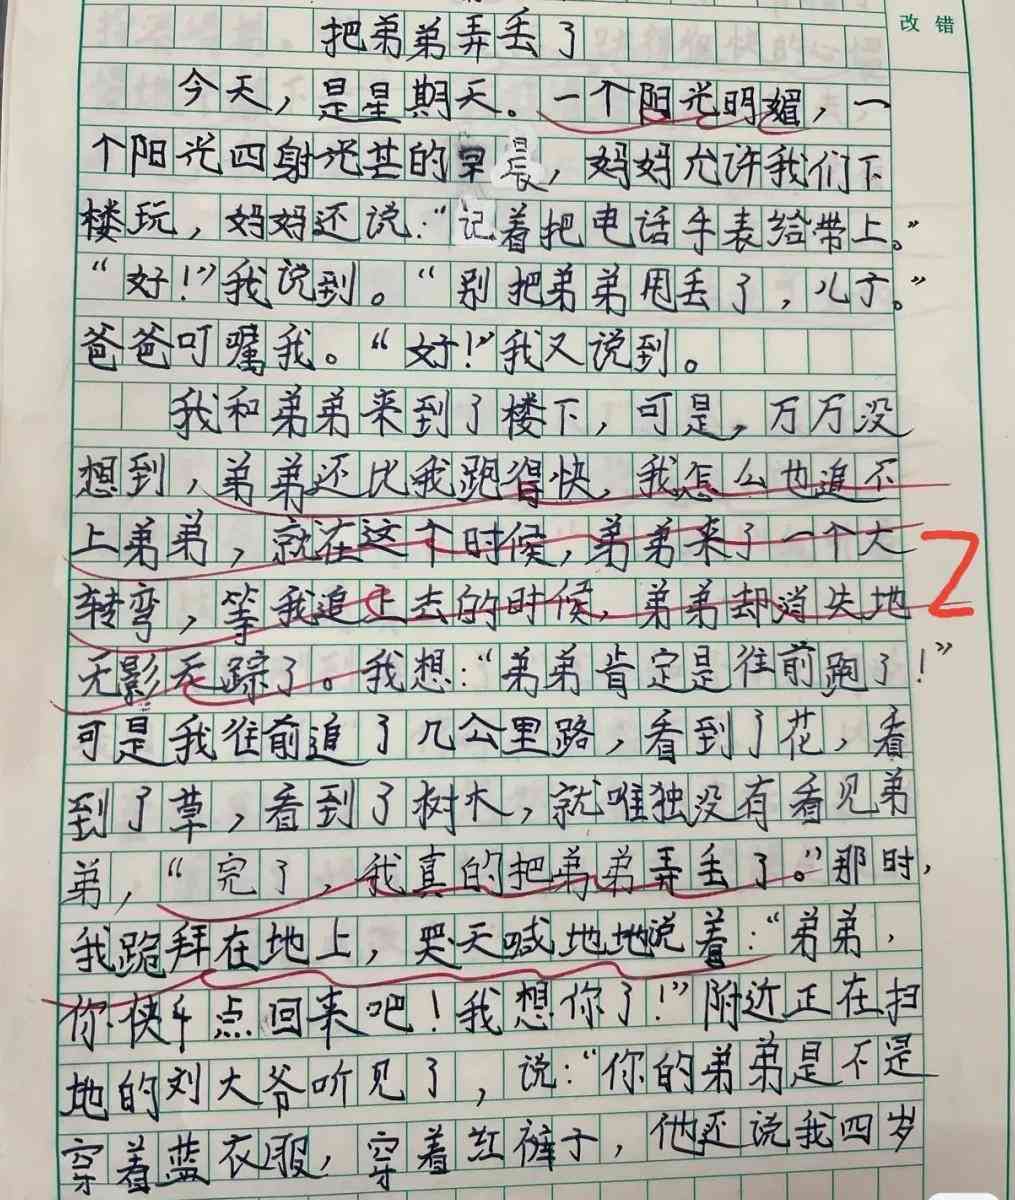 改错
把弟弟弄丢了
今天,是星期天。一个阳光明媚,一
个阳光四射光芒的早晨,妈妈允许我们下
楼玩,妈妈还说:“记着把电话手表给带上。”
“好!”我说到。“别把弟弟甩丢了,儿子。”
爸爸叮嘱我。“好!”我又说到。
我和弟弟来到了楼下,可是,万万没
想到,弟弟还比我跑得快,我怎么也追不
上弟弟,就在这个时候,弟弟来了一个大
转弯,等我追上去的时候,弟弟却消失地
无影无踪了。我想:“弟弟肯定是往前跑了!”
可是我往前追了几公里路,看到了花,看
到了草,看到了树木,就唯独没有看见弟
弟,“完了,我真的把弟弟弄丢了。”那时,
我跪拜在地上,哭天喊地地说着:“弟弟,
你快点回来吧!我想你了!”附近正在扫
地的刘大爷听见了,说:“你的弟弟是不是
穿着蓝衣服,穿着红裤子,他还说我四岁